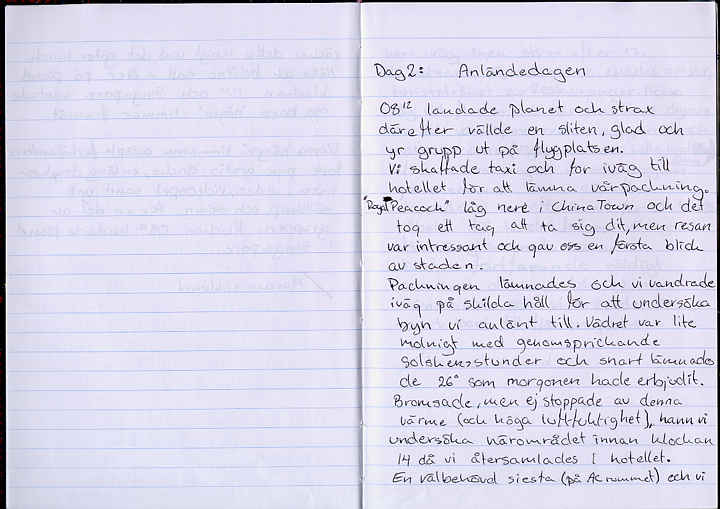 Dag 2: Anländedagen
08¹² landade planet och strax
därefter vällde en sliten, glad och
yr grupp ut på flygplatsen.
Vi skaffade taxi och for iväg till
hotellet för att lämna vår packning.
"Royal Peacock" låg nere i ChinaTown och det
tog ett tag att ta sig dit, men resan
var intressant och gav oss en första blick
av staden.
Packningen lämnades och vi vandrade
iväg på skilda håll för att undersöka
byn vi anlänt till. Vädret var lite
molnigt med genomsprickande
solskensstunder och snart lämnades
de 26° som morgonen hade erbjudit.
Bromsade, men ej stoppade av denna
värme (och höga luftfuktighet), hann vi
undersöka närområdet innan klockan
14 då vi återsamlades i hotellet.
En välbehövd siesta (på Ac rummet) och vi